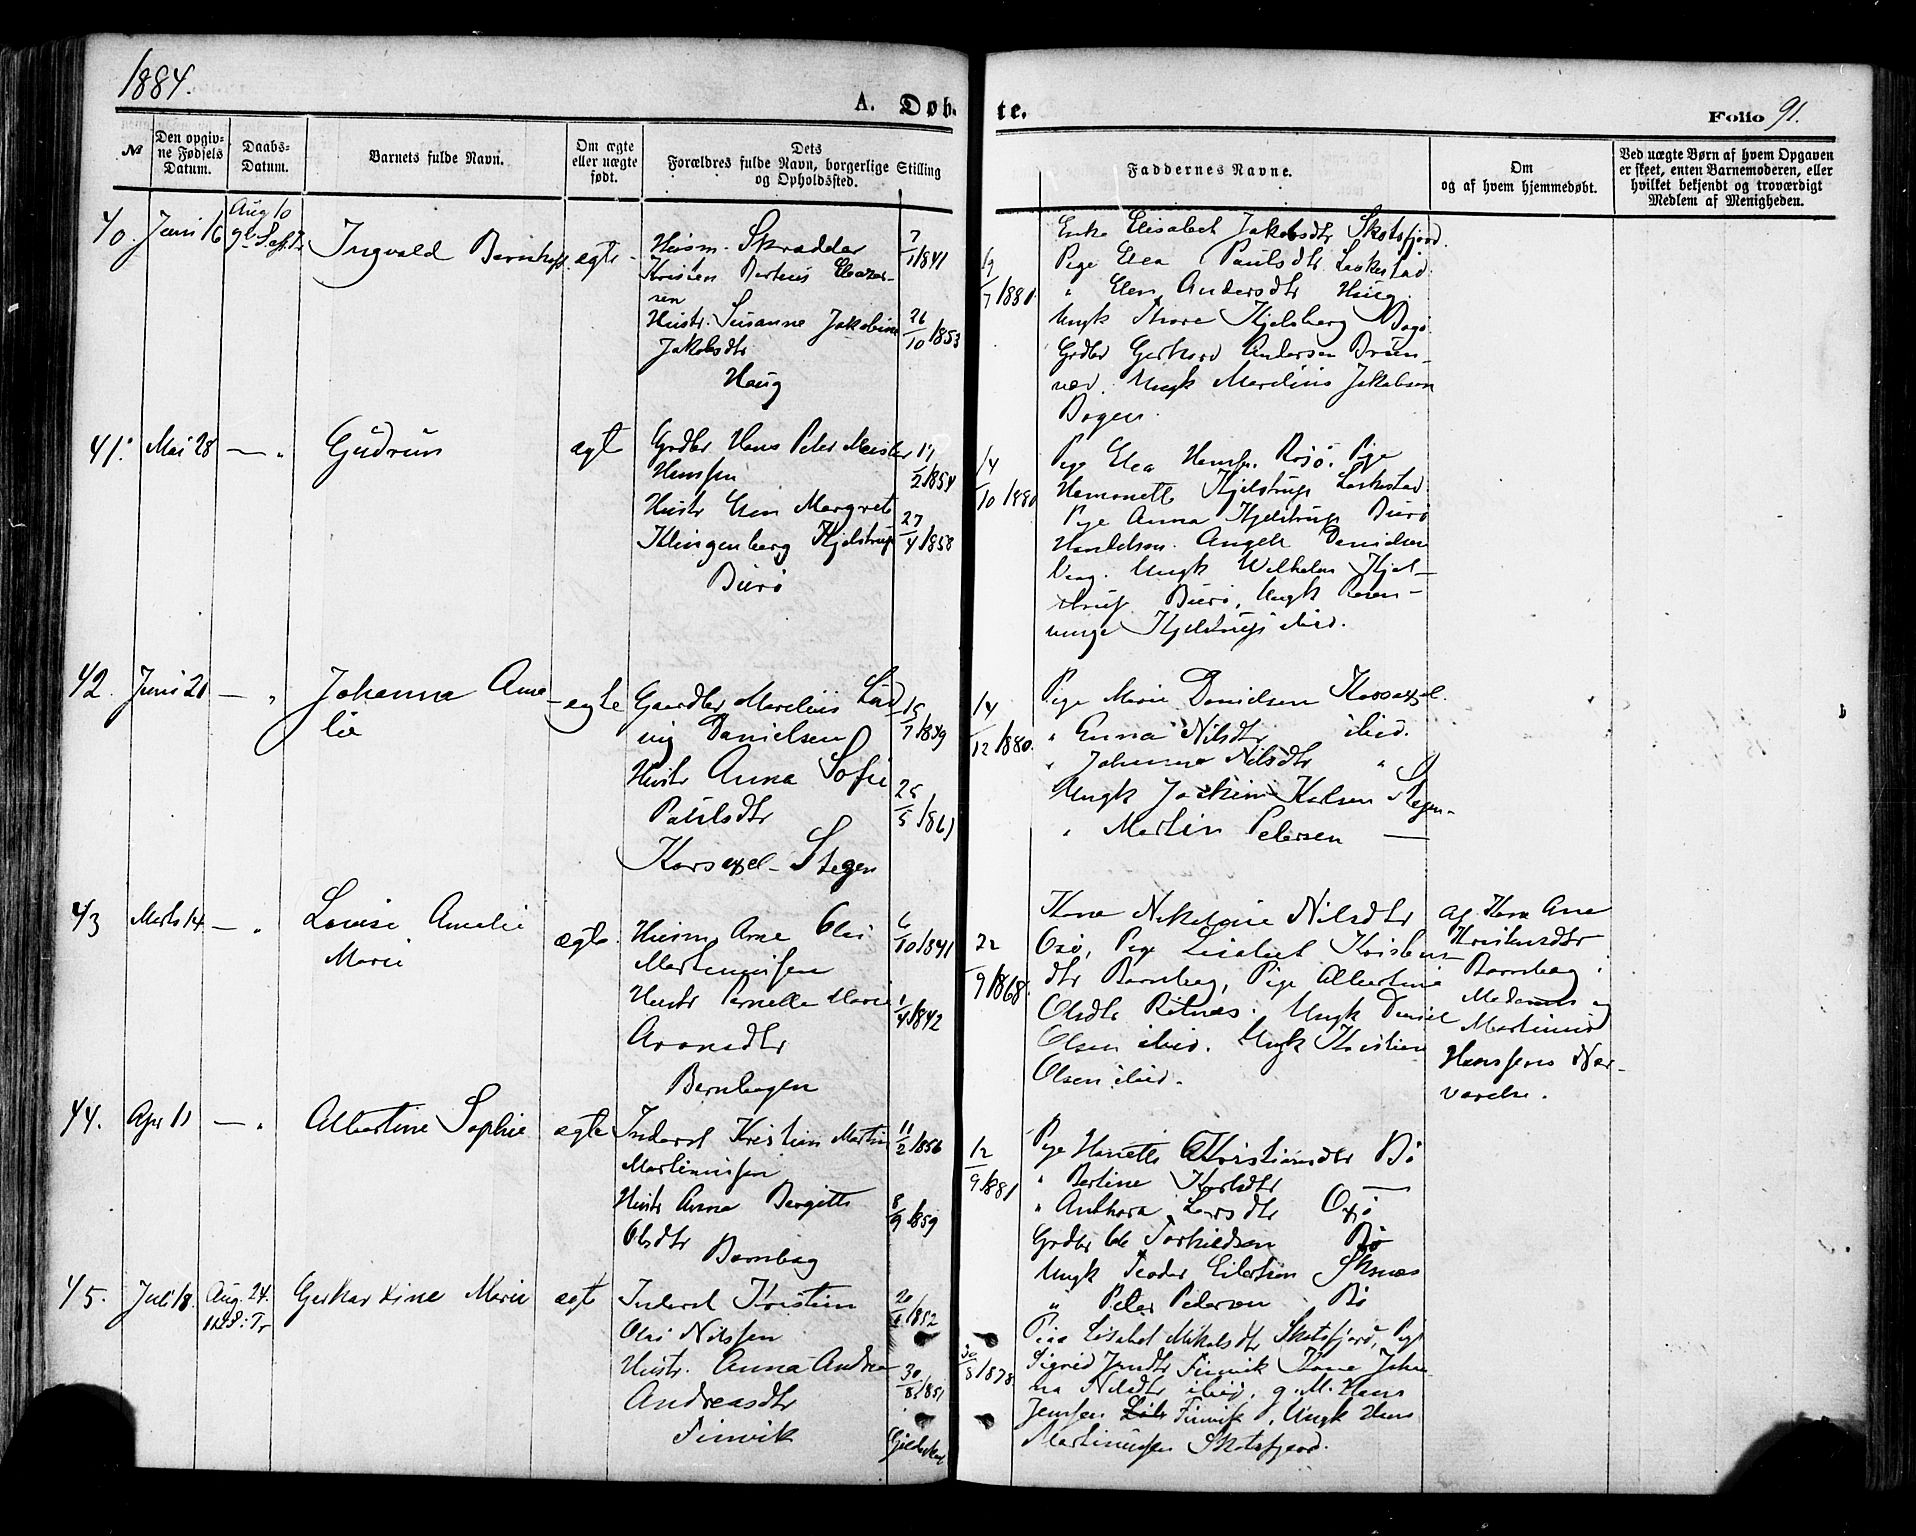 1884.
A. Døb-
te.
Folio 91.
№
Den opgiv-
ne Fødsels
Datum.
Daabs-
Datum.
Barnets fulde Navn.
Om ægte
eller uægte
født.
Dets
Forældres fulde Navn, borgerlige Stilling
og Opholdssted.
Faddernes Navne.
Om
og af hvem hjemmedøbt.
Ved uægte Børn af hvem Opgaven
er skeet, enten Barnemoderen, eller
hvilket bekjendt og troværdigt
Medlem af Menigheden.
40. Juni 16 Aug 10
Ingvald ægte
Husm. Skrædder 7/1 1841
Kristen Berteus Eleazar-
sen
Hustr. Susanne Jakobine 26/10 1853
Jakobsdtr
Haug
19/7 1880.
Enke Elisabet Jakobsdtr Skotsfjord.
Pige Elea Paulsdtr Laskestad.
" Elen Andersdtr Haug.
Ungk Thore Kjelsberg Bogø
Grdbr Gerhard Andersen Brun-
vær. Ungk Marelius Jakobsen
Bogen.
41. Mai 28 — "
Gudrun ægte
Grdbr Hans Peter Meisler 17/2 1854
Hanssen
Hustr Elen Margrete 27/4 1858
Klingenberg Kjelstrup
Burø
14/10 1880
Pige Elea Hanssen Røsø. Pige
Hamonette Kjelstrup Laskestad
Pige Anna Kjelstrup Burø
Handelsm. Angell Danielsen
Vaag. Ungk Wilhelm Kjel-
strup Burø, Ungk Rosen-
unge Kjelstrup ibid.
42. Juni 21 — "
Johanna Ama-
lie
ægte
Gaardbr Marelius Lud 15/7 1859
vig Danielsen
Hustr Anna Sofie
Paulsdtr 25/5 1861
Korsøxel - Stegen
14/12 1880.
Pige Marie Danielsen Korsøxel.
" Enna Nilsdtr ibid.
" Johanna Nilsdtr "
Ungk Joakim Karlsen Stegen-
" Martin Petersen —
43 Marts 14 — "
Lovise Amalie
Marie
ægte.
Husm Arne Olai 6/10 1841
Martinussen
Hustr Pernelle Marie 1/4 1842
Aronsdtr
Bornbogen
22/9 1868.
Kone Nikoline Nilsdtr
Oxø, Pige Lisabet Kristens-
dtr Bornbog, Pige Albertine
Olsdtr Rotnæs. Ungk Daniel
Olsen ibid. Ungk Kristian
Olsen ibid.
Af Kone Ane
Kristensdtr
Bornbog i
Moderens og
Martinus
Hanssens Nær-
værelse.
44. Apr 11 — "
Albertine Sophie ægte
Inderst Kristian Martin 11/2 1856
Martinussen
Hustr Anna Bergitte 8/9 1859
Olsdtr
Bornbog
12/9 1881
Pige Hanette Kristiansdtr Bø
" Bertine Karlsdtr —
" Anthora Larsdtr Oxø
Grdbr Ole Torkildsen Bø
Ungk Teodor Eilertsen Skjnæs
" Peter Petersen Bø
45. Juli 18. Aug. 24.
11te S: Tr
Gerhardine Marie ægte
Inderst Kristian
Olai Nilssen
Hustr. Anna Andrea 30/8 1851
Andreasdtr
Finvik
30/5 1878.
Pige Lisabet Mikalsdtr Skotsfjord, Pige
Sigrid Jensdtr Finvik Kone Joha-
na Nilsdtr ibid. g. M. Hans
Jenssen Finvik, Ungk Hans
Martinussen Skotsfjord.